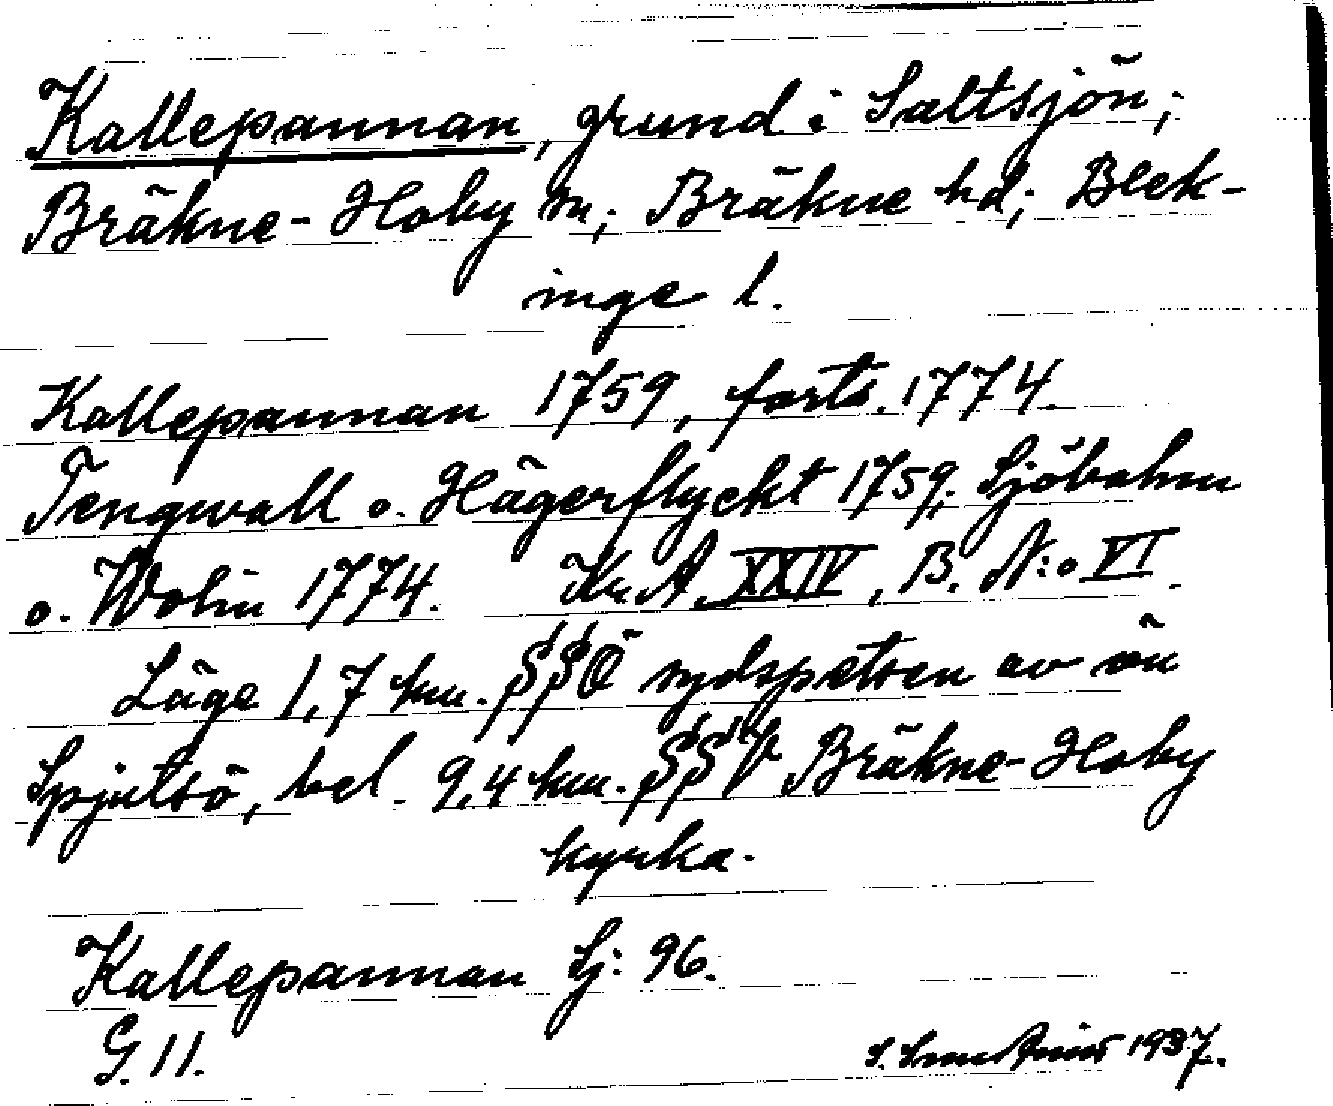 Kallepannan, grund i Saltsjön;
Bräkne-Hoby sn; Bräkne hd; Blek-
inge l.
Kallepannan 1759, forts. 1774.
Tengwall o. Hägerflyckt 1759; Sjöbohm
o. Wolin 1774. Kr. A. XXIV, B. N:o VI.
Läge 1,7 km. SSÖ sydspetsen av ön
Spjutsö, bel. 9,4 km. SSV Bräkne-Hoby
kyrka.
Kallepannan Sj: 96.
G. 11.
S. 1937.